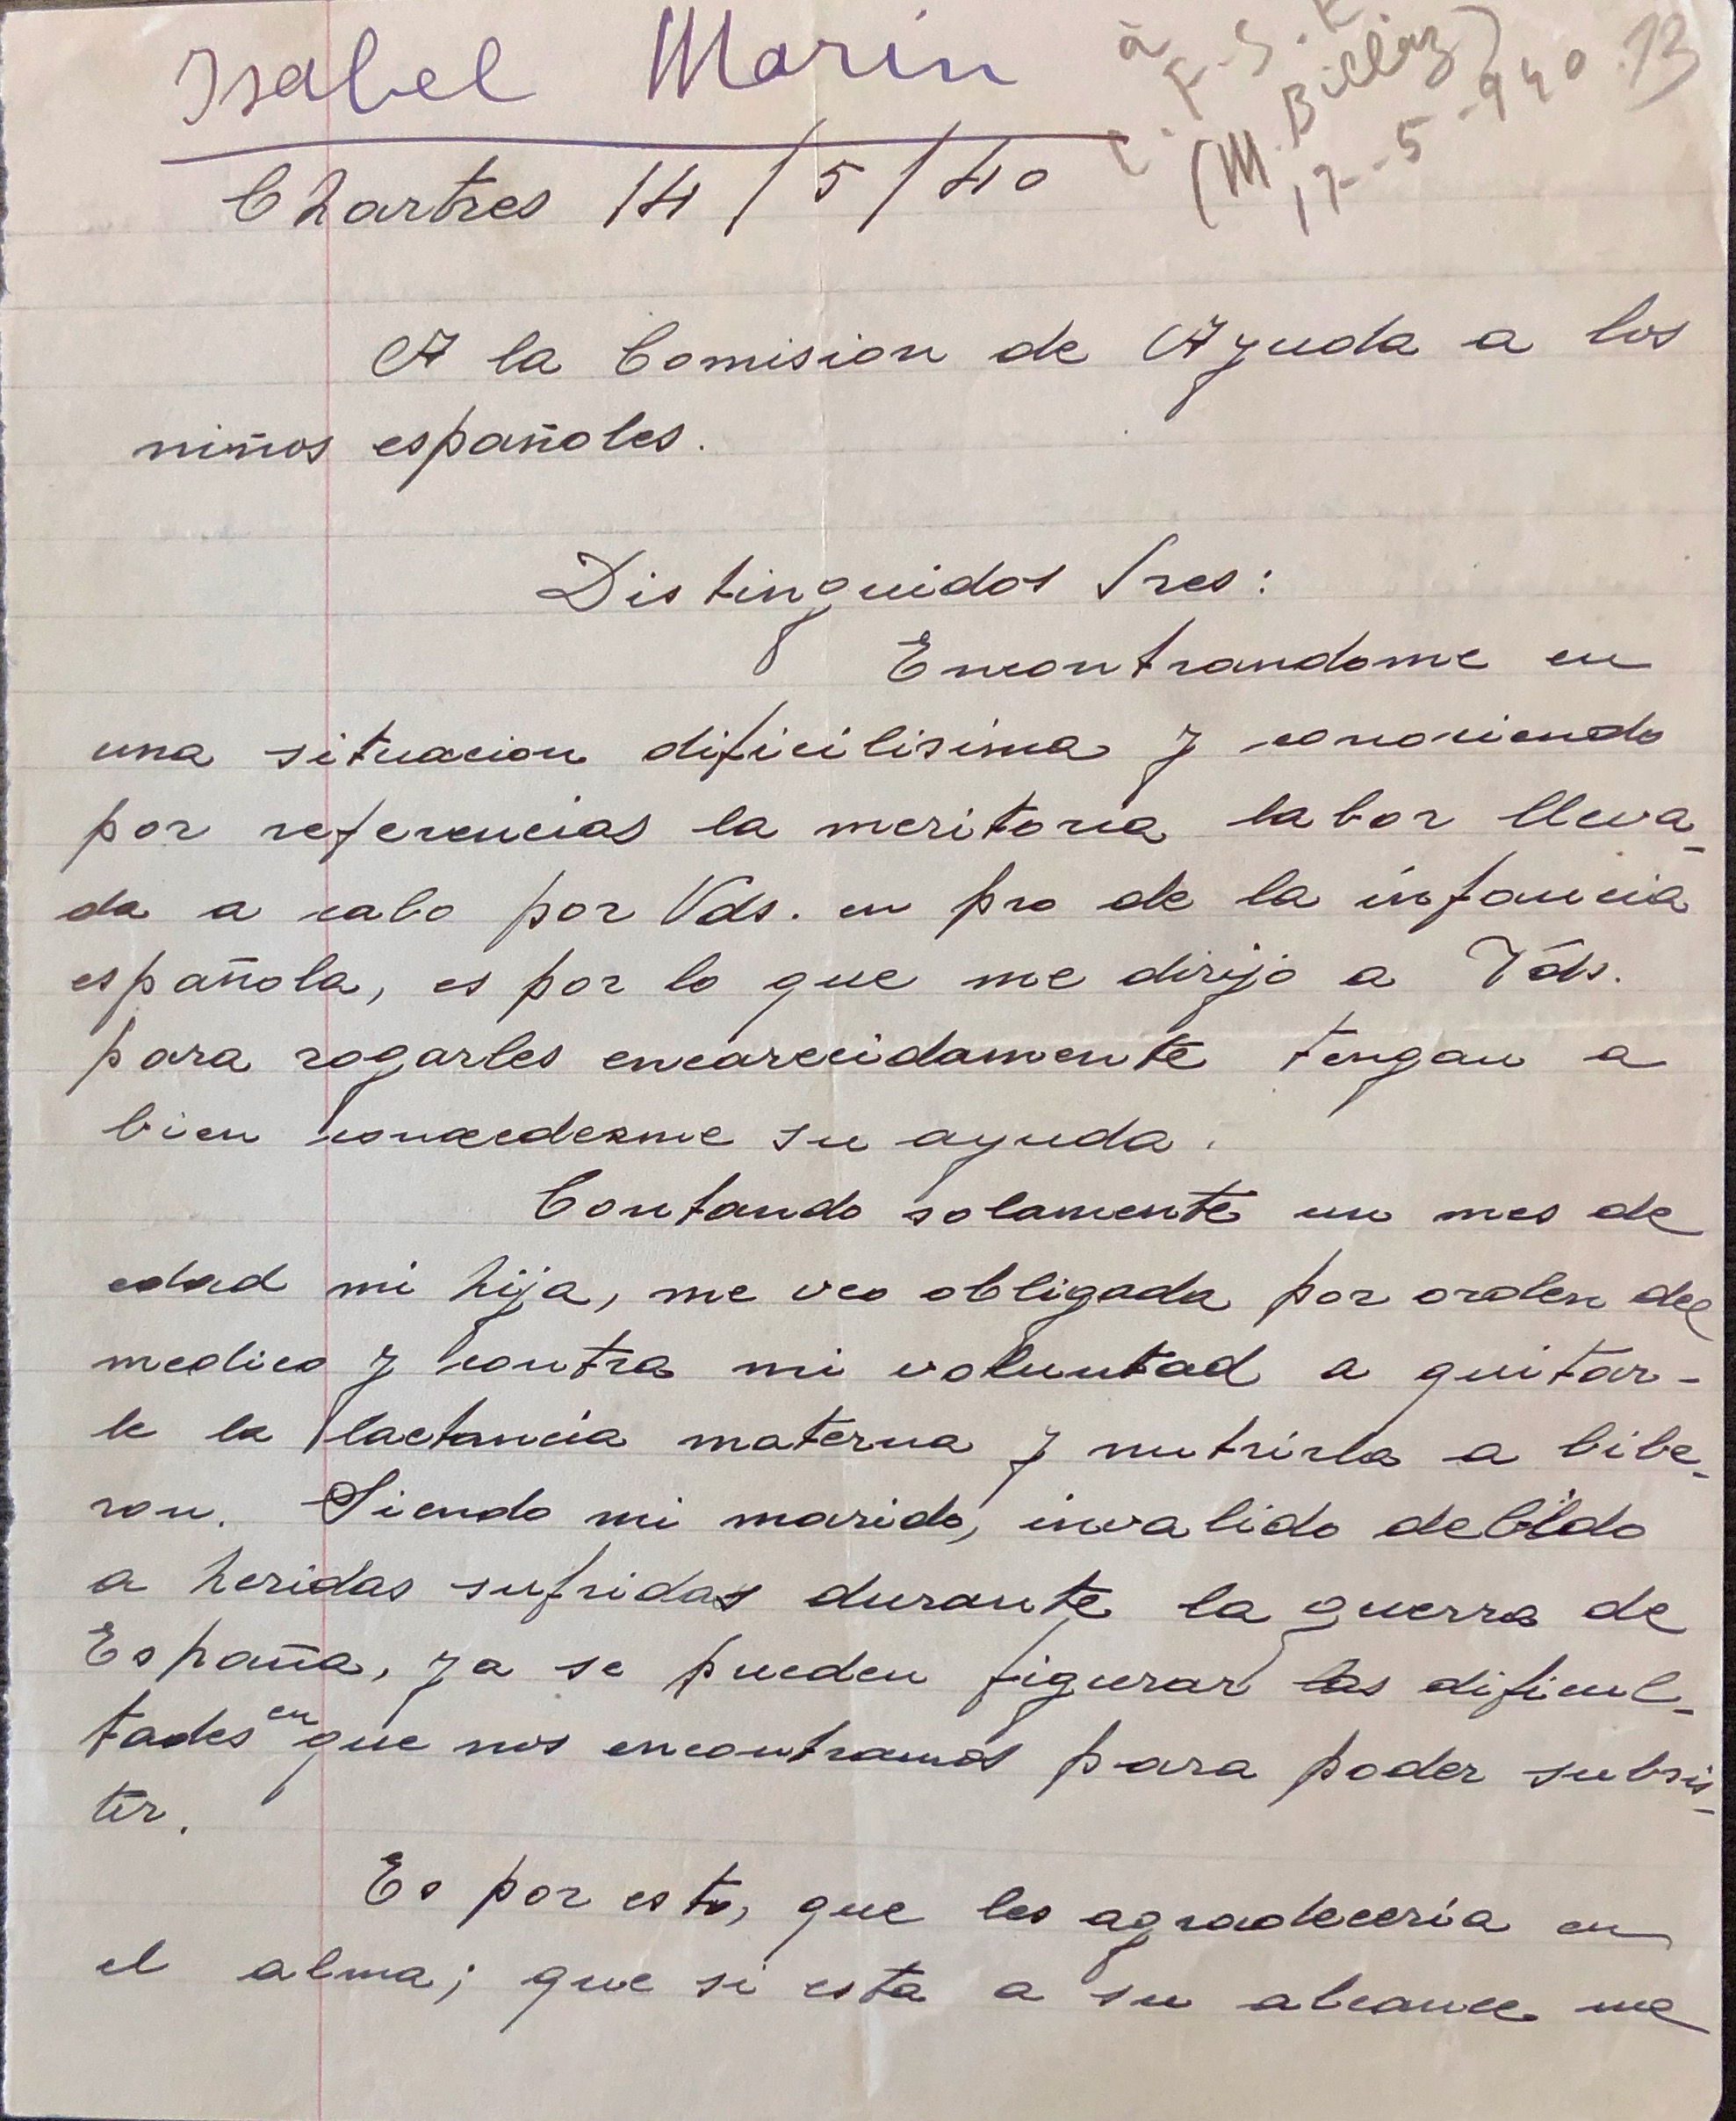 Isabel Marin
à
F.S.
(M. Billaz)
17-5-940
13
Chartres 14/5/40
A la Comision de Ayuda a los
niños españoles.
Distinguidos Sres:
Encontrandome en
una situacion dificilisima y conociendo
por referencias la meritoria labor lleva-
da a cabo por Vds. en pro de la infancia
española, es por lo que me dirijo a Vds.
para rogarles encarecidamente tengan a
bien concederme su ayuda.
Contando solamente un mes de
edad mi hija, me veo obligada por orden del
medico y contra mi voluntad a quitar-
le la lactancia materna y nutrirla a bibe-
ron. Siendo mi marido, invalido debido
a heridas sufridas durante la guerra de
España, ya se pueden figurar las dificul-
tades en que nos encontramos para poder subsis-
tir.
Es por esto, que les agradeceria en
el alma; que si esta a su alcance me